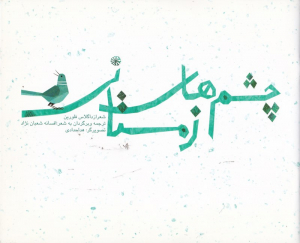 چشم‌های
زمستانی
شعر از داگلاس فلورین
ترجمه و برگردان به شعر افسانه شعبان نژاد
تصویرگر: هدا حدادی